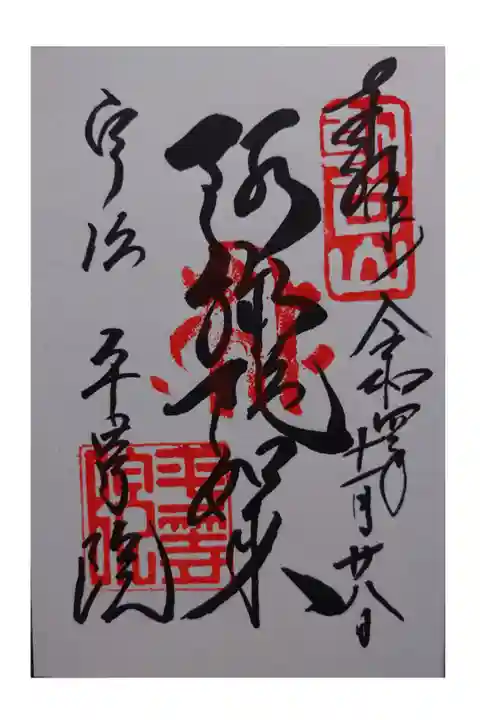 奉拝
令和四年十一月廿八日
阿弥陀如来
宇治 平等院
平等院